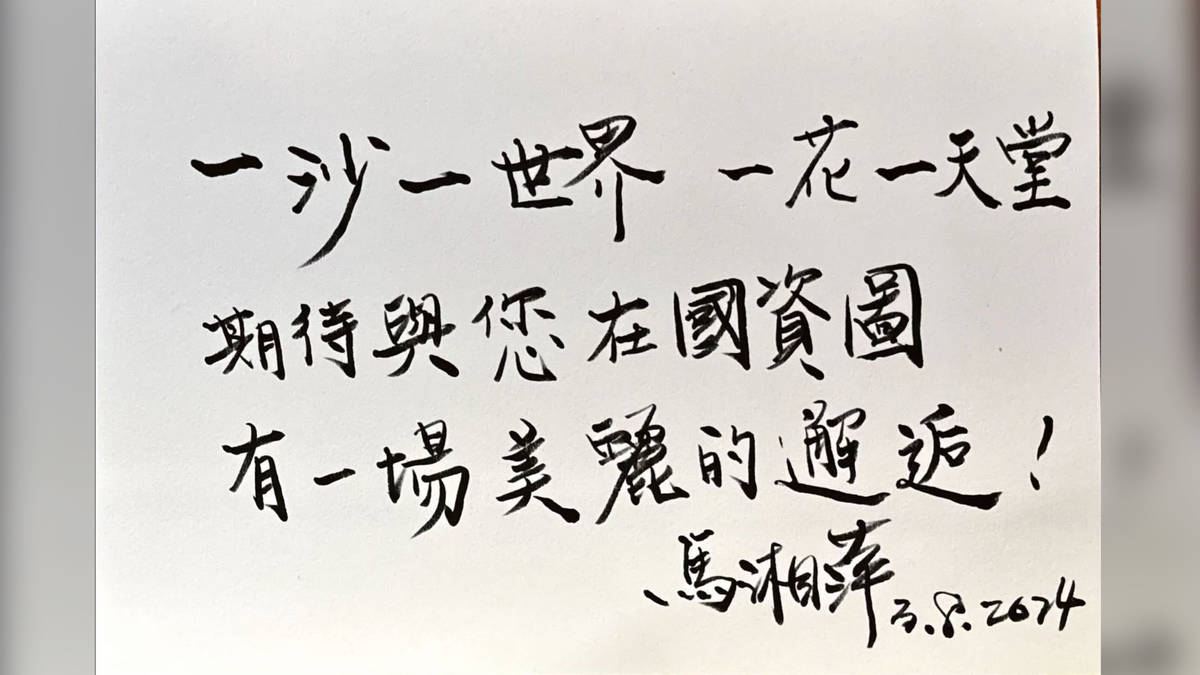 一沙一世界 一花一天堂
期待與您在國資圖
有一場美麗的邂逅！
馬湘萍 3.8.2024